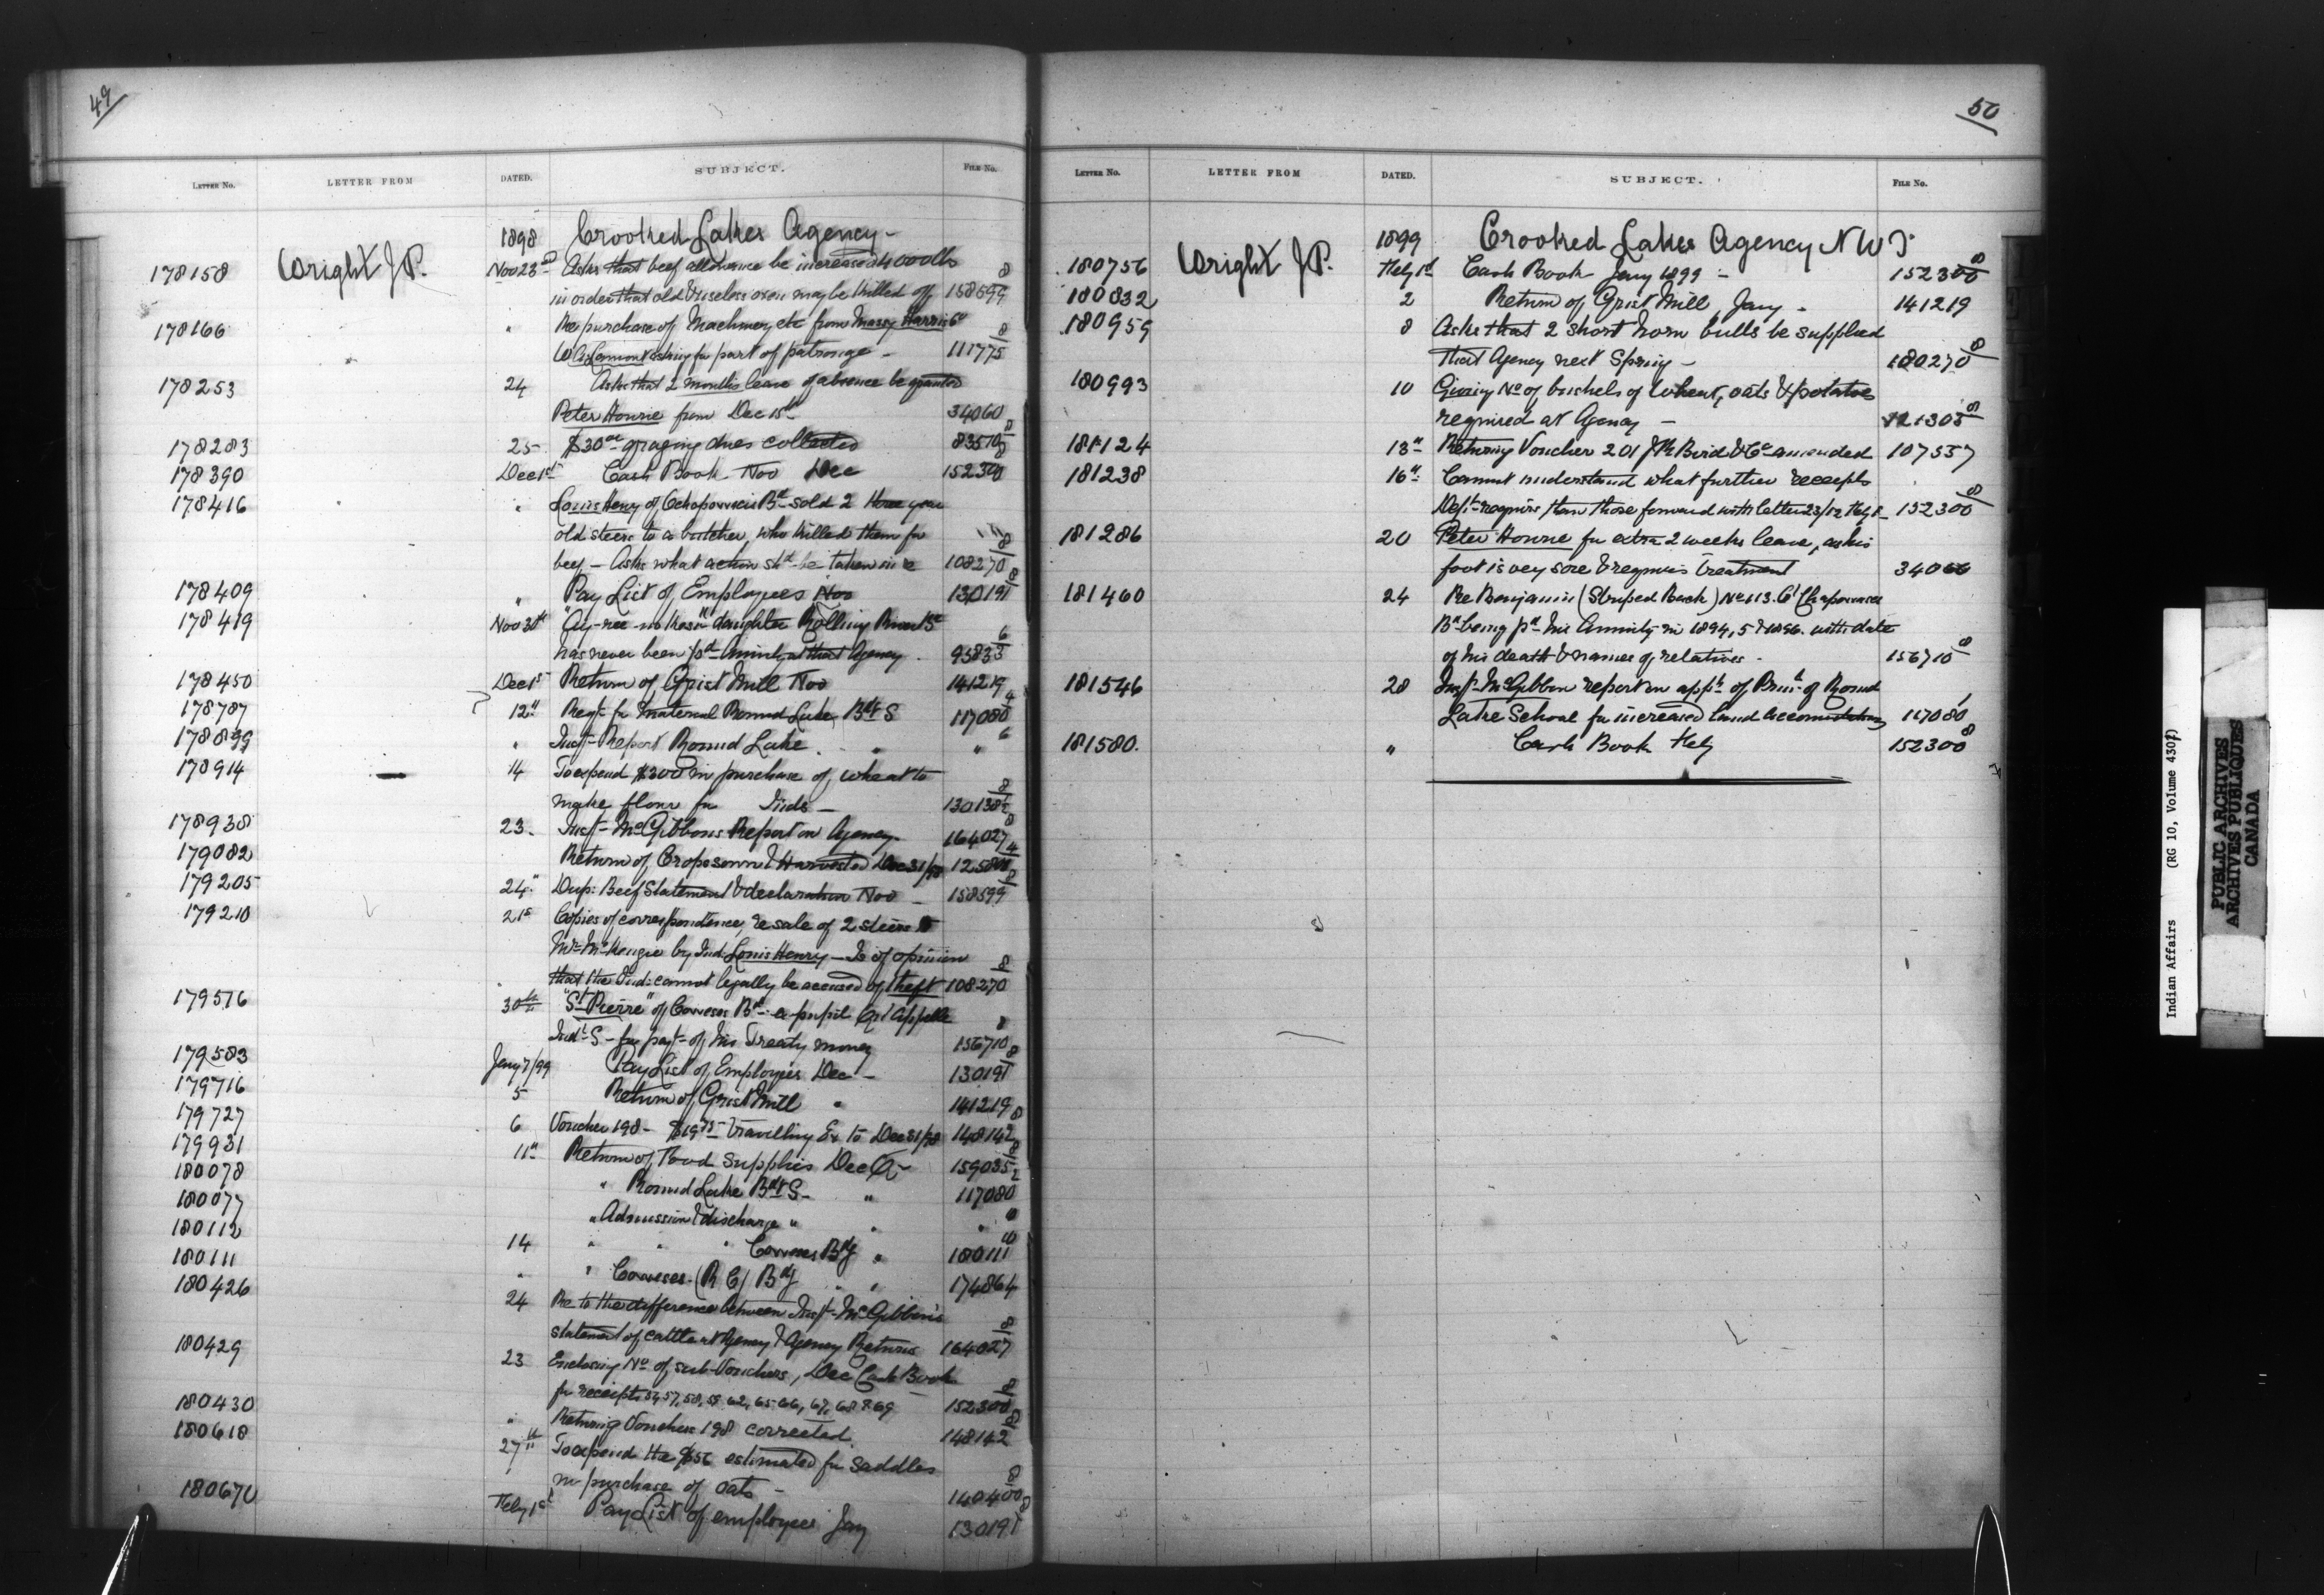 49
LETTER No. LETTER FROM DATED. SUBJECT. FILE No.
1898 Crooked Lakes Agency -
178158 Wright J.P. Nov 23rd Asks that beef allowance be increased 4000 lbs
in order that old & useless oxen may be killed off 158599 8
178166 " Re purchase of Machinery etc from Massy Harris Co
asking for part of patronage - 111775 8
178253 24 Asks that 2 months leave of absence be granted
Peter Hourie from Dec 15th 34060
178283 25 $30 00 grazing dues collected 83570 8
178390 Dec 1st Cash Book Nov Dec 152300 8
178416 " Louis Henry of Ochapowace Bd sold 2 three year
old steers to a butcher, who killed them for
beef - Asks what action shd be taken in re 108270 8
178409 " Pay List of Employees Nov 130191 8
178419 Nov 30th daughter Rolling
has never been pd Annuity at that Agency 95833 6
178450 Dec 1st Return of Grist Mill Nov 141219
178787 12" Reqt for material Round Lake Bd S 117080 4
178899 " Inst- Report Round Lake " " 6
178914 14 To expend $300 in purchase of wheat to
make flour for Inds - 130138 8
178938 23. Inst- McGibbons Report on Agency 164027 8
179082 Return of Crops sown & Harvested Dec 31/98 4
179205 24" Dup: Beef Statement & declaration Nov - 158599 8
179210 21st Copies of correspondence, re sale of 2 steers to
Mr McKenzie by Ind: Louis Henry - Is of opinion
that the Ind: cannot legally be accused of theft 108270 8
179516 30th "St Pierre" of Coweses Bd - a pupil Qu'Appelle
Indl S - for payt of his Treaty money 156710 8
179583 Jany 7/99 Pay List of Employees Dec - 130191 8
179716 5 Return of Grist Mill " 141219
179727 6 Voucher 198 - $19 75 travelling Ex to Dec 31/98 148142 8
179931 11" Return of Food Supplies Dec Qr 159035 8
180078 " Round Lake Bd S - " 117080 2
180077 " Admission & discharge " " "
180112 14 " " " Coweses Bdg " 180111
180111 " " Coweses - (R C) Bdg " " 174864
180426 24 Re to the difference between Inst- McGibbon's
statement of cattle at Agency & Agency Returns 164027 8
180429 23 Enclosing No of sub-Vouchers, Dec Cash Book
for receipts 54, 57, 58, 59 62, 65, 66, 67, 68 & 69 152300 8
180430 " Returning Voucher 198 corrected. 148142 8
180618 27th To expend the $56 estimated for saddles
in purchase of oats - 140400 8
180670 Feby 1st Pay List of employees Jany 130191 8
50
LETTER No. LETTER FROM DATED. SUBJECT. FILE No.
1899 Crooked Lakes Agency N W T
180756 Wright J P. Feby 1st Cash Book Jany 1899 - 152300 8
180832 2 Return of Grist Mill Jany - 141219
180959 8 Asks that 2 short horn bulls be supplied
that Agency next Spring - 180270 8
180993 10 Giving No of bushels of Wheat, oats & potatoes
required at Agency - 121305 8
181124 13" Returning Voucher 201 Bird & Co amended 107557
181238 16" Cannot understand what further receipts
Dept- requires than those forward with letter 23/12 Feby 152300 8
181286 20 Peter Hourie for extra 2 weeks leave, as his
foot is very sore & requires treatment 34060
181460 24 Re Benjamin (Striped Back) No 113. Chapowaces
Bd being pd his Annuity in 1894, 5 & 1896. with date
of his death & names of relatives - 156710 8
181546 28 Inst- McGibbon report on appn of Prinl of Round
Lake School for increased land accomodation 117080 1
181580. " Cash Book Feby 152300 8
Indian Affairs (RG 10, Volume 4307)
PUBLIC ARCHIVES
ARCHIVES PUBLIQUES
CANADA